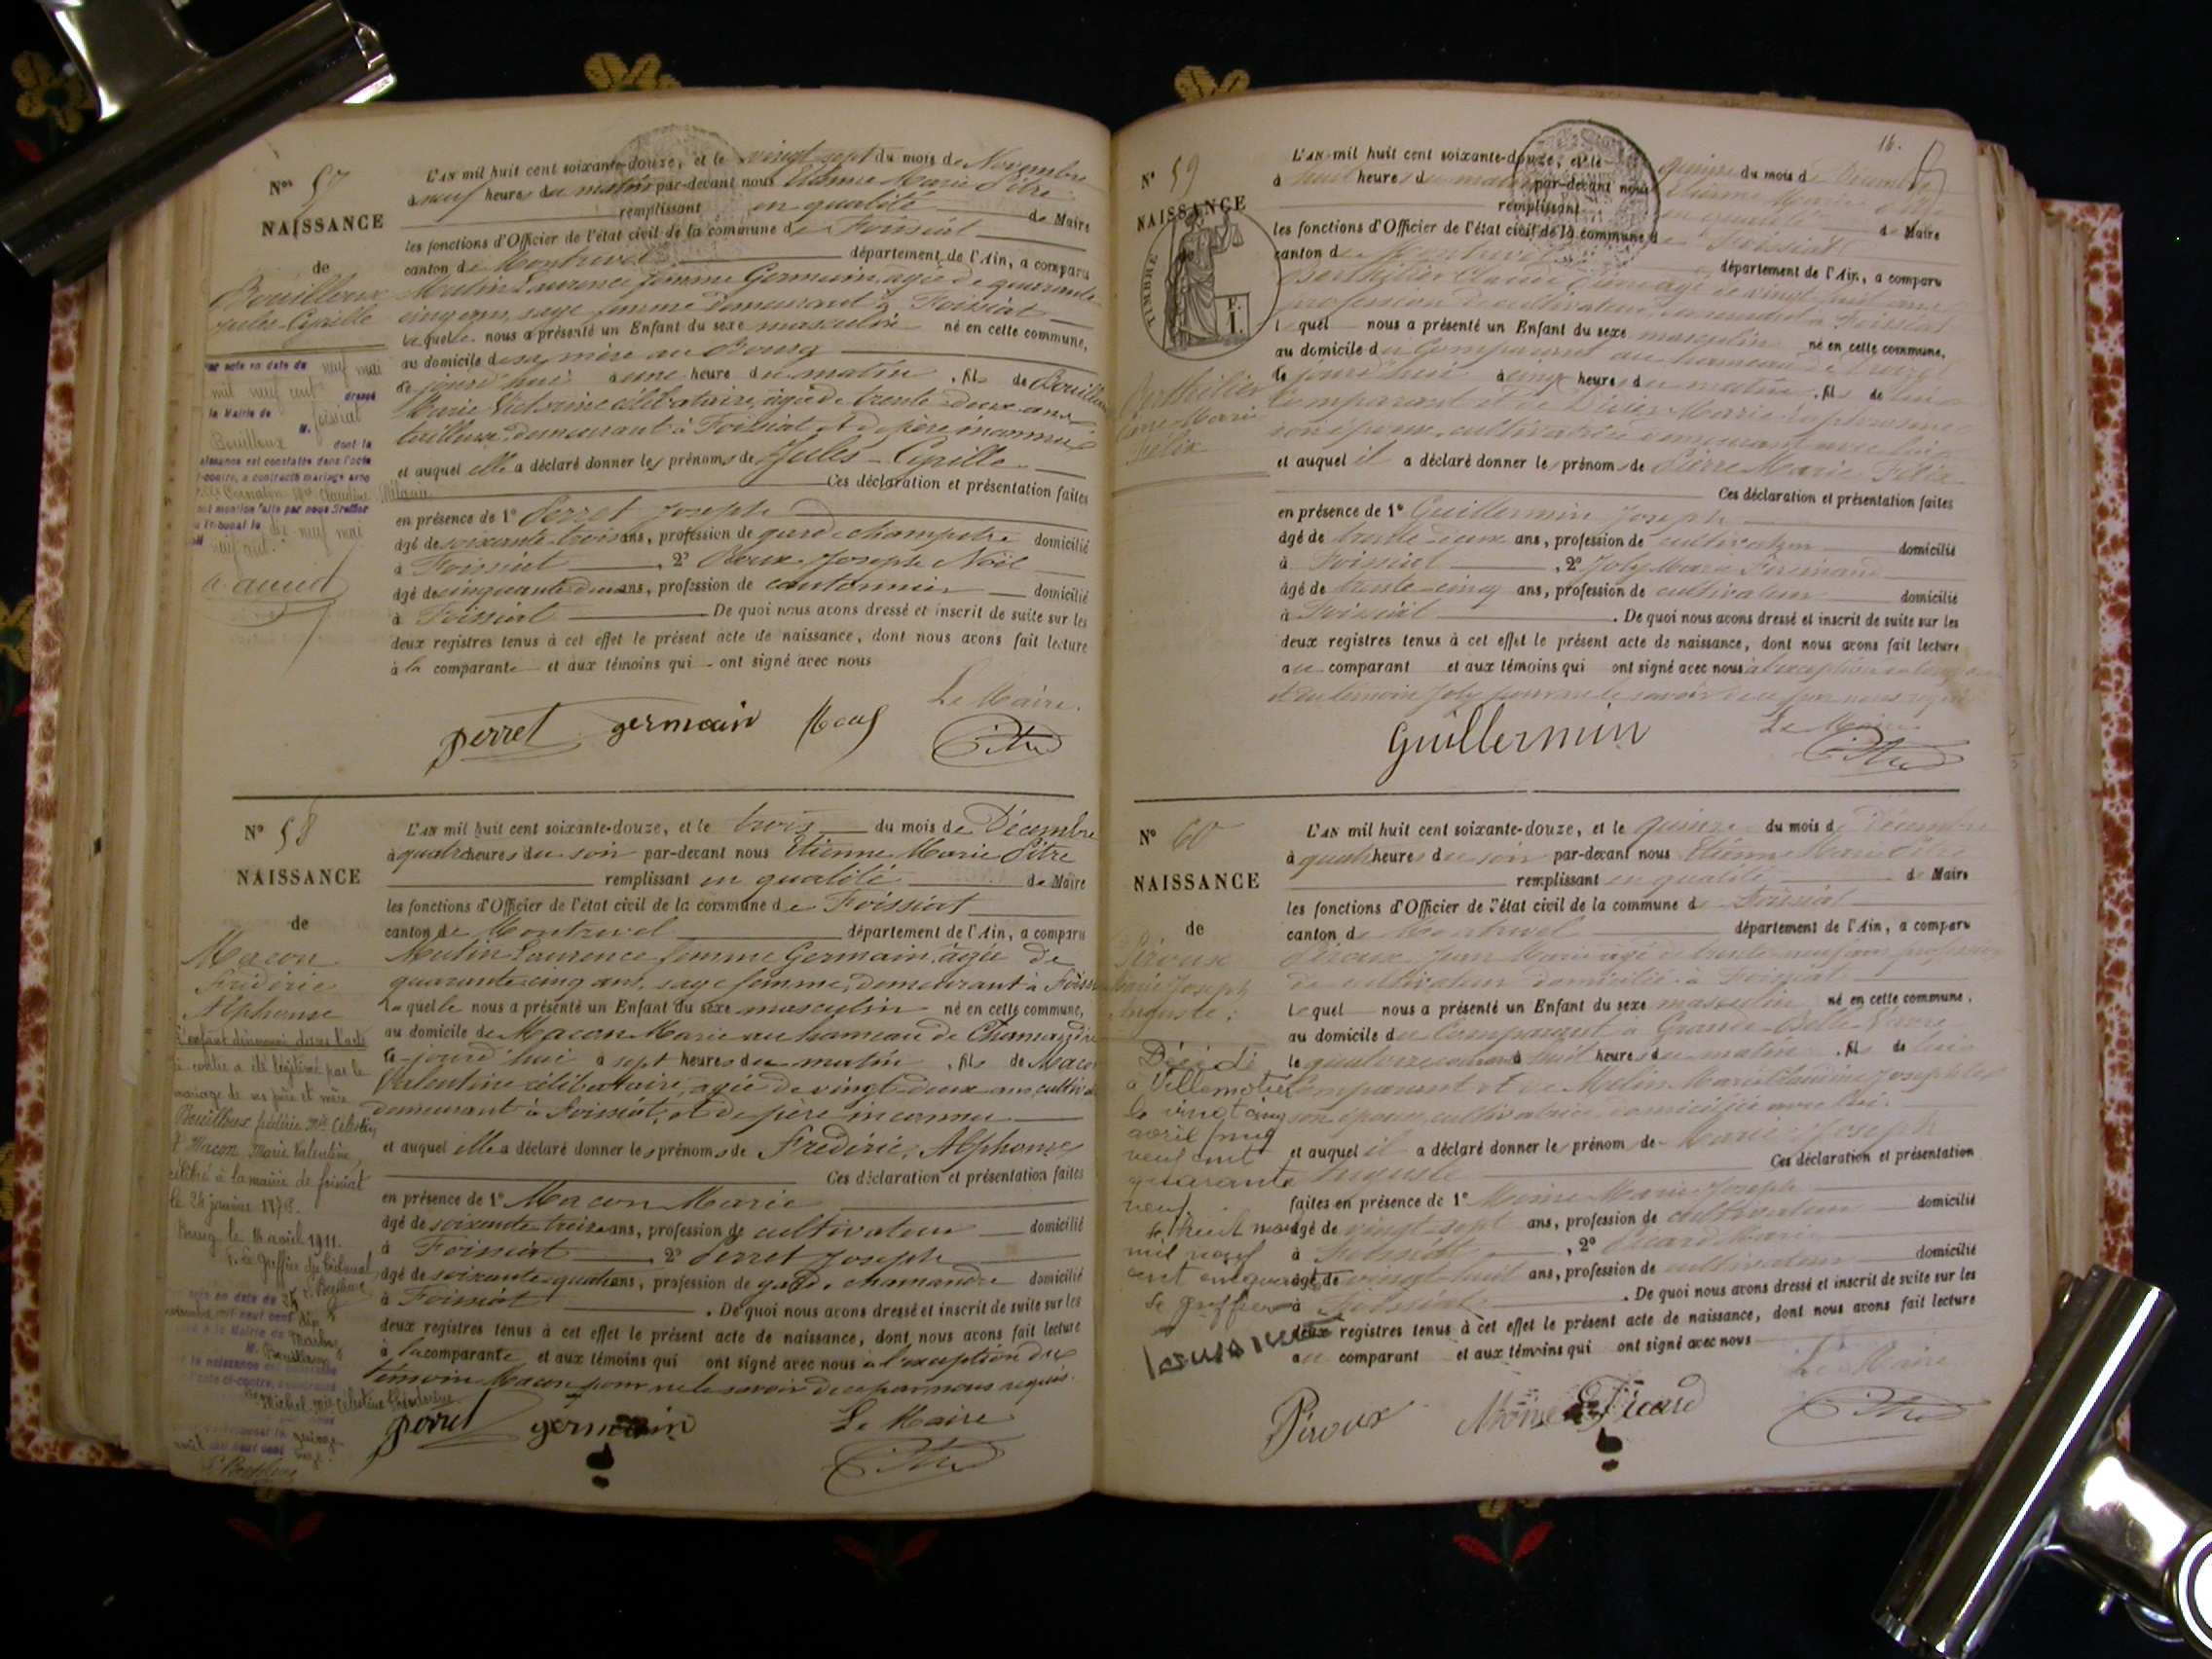 Nos 57
NAISSANCE
de
Bouilloux
Jules Cyrille
par acte en date du neuf mai
mil neuf cent dressé
la Mairie de Foissiat
M. Bouilloux dont la
naissance est constatée dans l'acte
ci-contre, a contracté mariage avec
Claudine
mention faite par nous Greffier
du Tribunal le dix-neuf mai
neuf cent.
L'AN mil huit cent soixante-douze, et le vingt sept du mois de Novembre
à neuf heures du matin par-devant nous Etienne Marie Pitre
remplissant en qualité de Maire
les fonctions d'Officier de l'état civil de la commune de Foissiat
canton de Montrevel département de l'Ain, a comparu
Mutin Laurence femme Germain, agée de quarante
cinq ans, sage femme demeurant à Foissiat
laquelle nous a présenté un Enfant du sexe masculin né en cette commune,
au domicile de sa mère au Bourg
ce jourd'hui à une heure du matin, fils de Bouilloux
Marie Victorine célibataire, agée de trente deux ans
tailleuse, demeurant à Foissiat et de père inconnu
et auquel elle a déclaré donner les prénoms de Jules-Cyrille
Ces déclaration et présentation faites
en présence de 1° Perret Joseph
âgé de soixante trois ans, profession de garde champetre domicilié
à Foissiat, 2° Joseph Noël
âgé de cinquante deux ans, profession de cantonnier domicilié
à Foissiat De quoi nous avons dressé et inscrit de suite sur les
deux registres tenus à cet effet le présent acte de naissance, dont nous avons fait lecture
à la comparante et aux témoins qui ont signé avec nous
Le Maire.
perret germain Pitre
N° 58
NAISSANCE
de
Macon
Frédéric
Alphonse
L'enfant dénommé dans l'acte
ci-contre a été légitimé par le
mariage de ses père et mère
Bouilloux frédéric
& Macon Marie Valentine,
célébré à la mairie de foissiat
le 24 janvier 1878.
Bourg, le 18 avril 1911.
L'AN mil huit cent soixante-douze, et le trois du mois de Décembre
à quatre heures du soir par-devant nous Etienne Marie Pitre
remplissant en qualité de Maire
les fonctions d'Officier de l'état civil de la commune de Foissiat
canton de Montrevel département de l'Ain, a comparu
Mutin Laurence femme Germain, agée de
quarante cinq ans, sage femme, demeurant à Foissiat
Laquelle nous a présenté un Enfant du sexe masculin né en cette commune,
au domicile de Macon Marie au hameau de
ce jourd'hui à sept heures du matin, fils de Macon
Valentine célibataire, agée de vingt deux ans,
demeurant à Foissiat, et de père inconnu
et auquel elle a déclaré donner les prénoms de Frédéric, Alphonse
Ces déclaration et présentation faites
en présence de 1° Macon Marie
âgé de soixante treize ans, profession de cultivateur domicilié
à Foissiat, 2° Perret Joseph
âgé de soixante quatre ans, profession de domicilié
à Foissiat. De quoi nous avons dressé et inscrit de suite sur les
deux registres tenus à cet effet le présent acte de naissance, dont nous avons fait lecture
à la comparante et aux témoins qui ont signé avec nous à l'exception du
témoin Macon pour ne le savoir de ce par nous requis.
perret germain Le Maire
Pitre
16.
N° 59
NAISSANCE
TIMBRE
Berthilier
Pierre Marie
Félix
L'AN mil huit cent soixante-douze, et le quinze du mois de Décembre
à huit heures du matin par-devant nous Etienne Marie Pitre
remplissant en qualité de Maire
les fonctions d'Officier de l'état civil de la commune de Foissiat
canton de Montrevel département de l'Ain, a comparu
Berthilier Claude agé de vingt huit ans
profession de cultivateur, demeurant à Foissiat
lequel nous a présenté un Enfant du sexe masculin né en cette commune,
au domicile du Comparant au hameau de
ce jourd'hui à cinq heures du matin, fils de lui
Comparant et de Marie
son épouse, cultivatrice demeurant avec lui
et auquel il a déclaré donner le prénoms de Pierre Marie Félix
Ces déclaration et présentation faites
en présence de 1° Guillermin Joseph
âgé de trente deux ans, profession de cultivateur domicilié
à Foissiat, 2° Joly Marie Ferdinand
âgé de trente cinq ans, profession de cultivateur domicilié
à Foissiat. De quoi nous avons dressé et inscrit de suite sur les
deux registres tenus à cet effet le présent acte de naissance, dont nous avons fait lecture
au comparant et aux témoins qui ont signé avec nous à l'exception
du témoin Joly pour ne le savoir de ce par nous requis
Guillermin Le Maire
Pitre
N° 60
NAISSANCE
de
Piroux
Marie Joseph
Auguste.
Décédé
à Villemotier
le vingt cinq
avril mil
neuf cent
quarante
neuf
Le huit mai
mil neuf
cent
Le greffier
L'AN mil huit cent soixante-douze, et le quinze du mois de Décembre
à quatre heures du soir par-devant nous Etienne Marie Pitre
remplissant en qualité de Maire
les fonctions d'Officier de l'état civil de la commune de Foissiat
canton de Montrevel département de l'Ain, a comparu
Piroux Jean Marie agé de trente neuf ans profession
de cultivateur domicilié à Foissiat
lequel nous a présenté un Enfant du sexe masculin né en cette commune,
au domicile du Comparant à
le quatorze courant à huit heures du matin, fils de lui
Comparant et de Marie Claudine Josephte
son épouse, cultivatrice domiciliée avec lui.
et auquel il a déclaré donner le prénom de Marie Joseph
Auguste Ces déclaration et présentation
faites en présence de 1° Moine Marie Joseph
âgé de vingt sept ans, profession de cultivateur domicilié
à Foissiat, 2° Picard Marie
âgé de vingt huit ans, profession de cultivateur domicilié
à Foissiat. De quoi nous avons dressé et inscrit de suite sur les
deux registres tenus à cet effet le présent acte de naissance, dont nous avons fait lecture
au comparant et aux témoins qui ont signé avec nous
Le Maire
Piroux Moine Picard Pitre